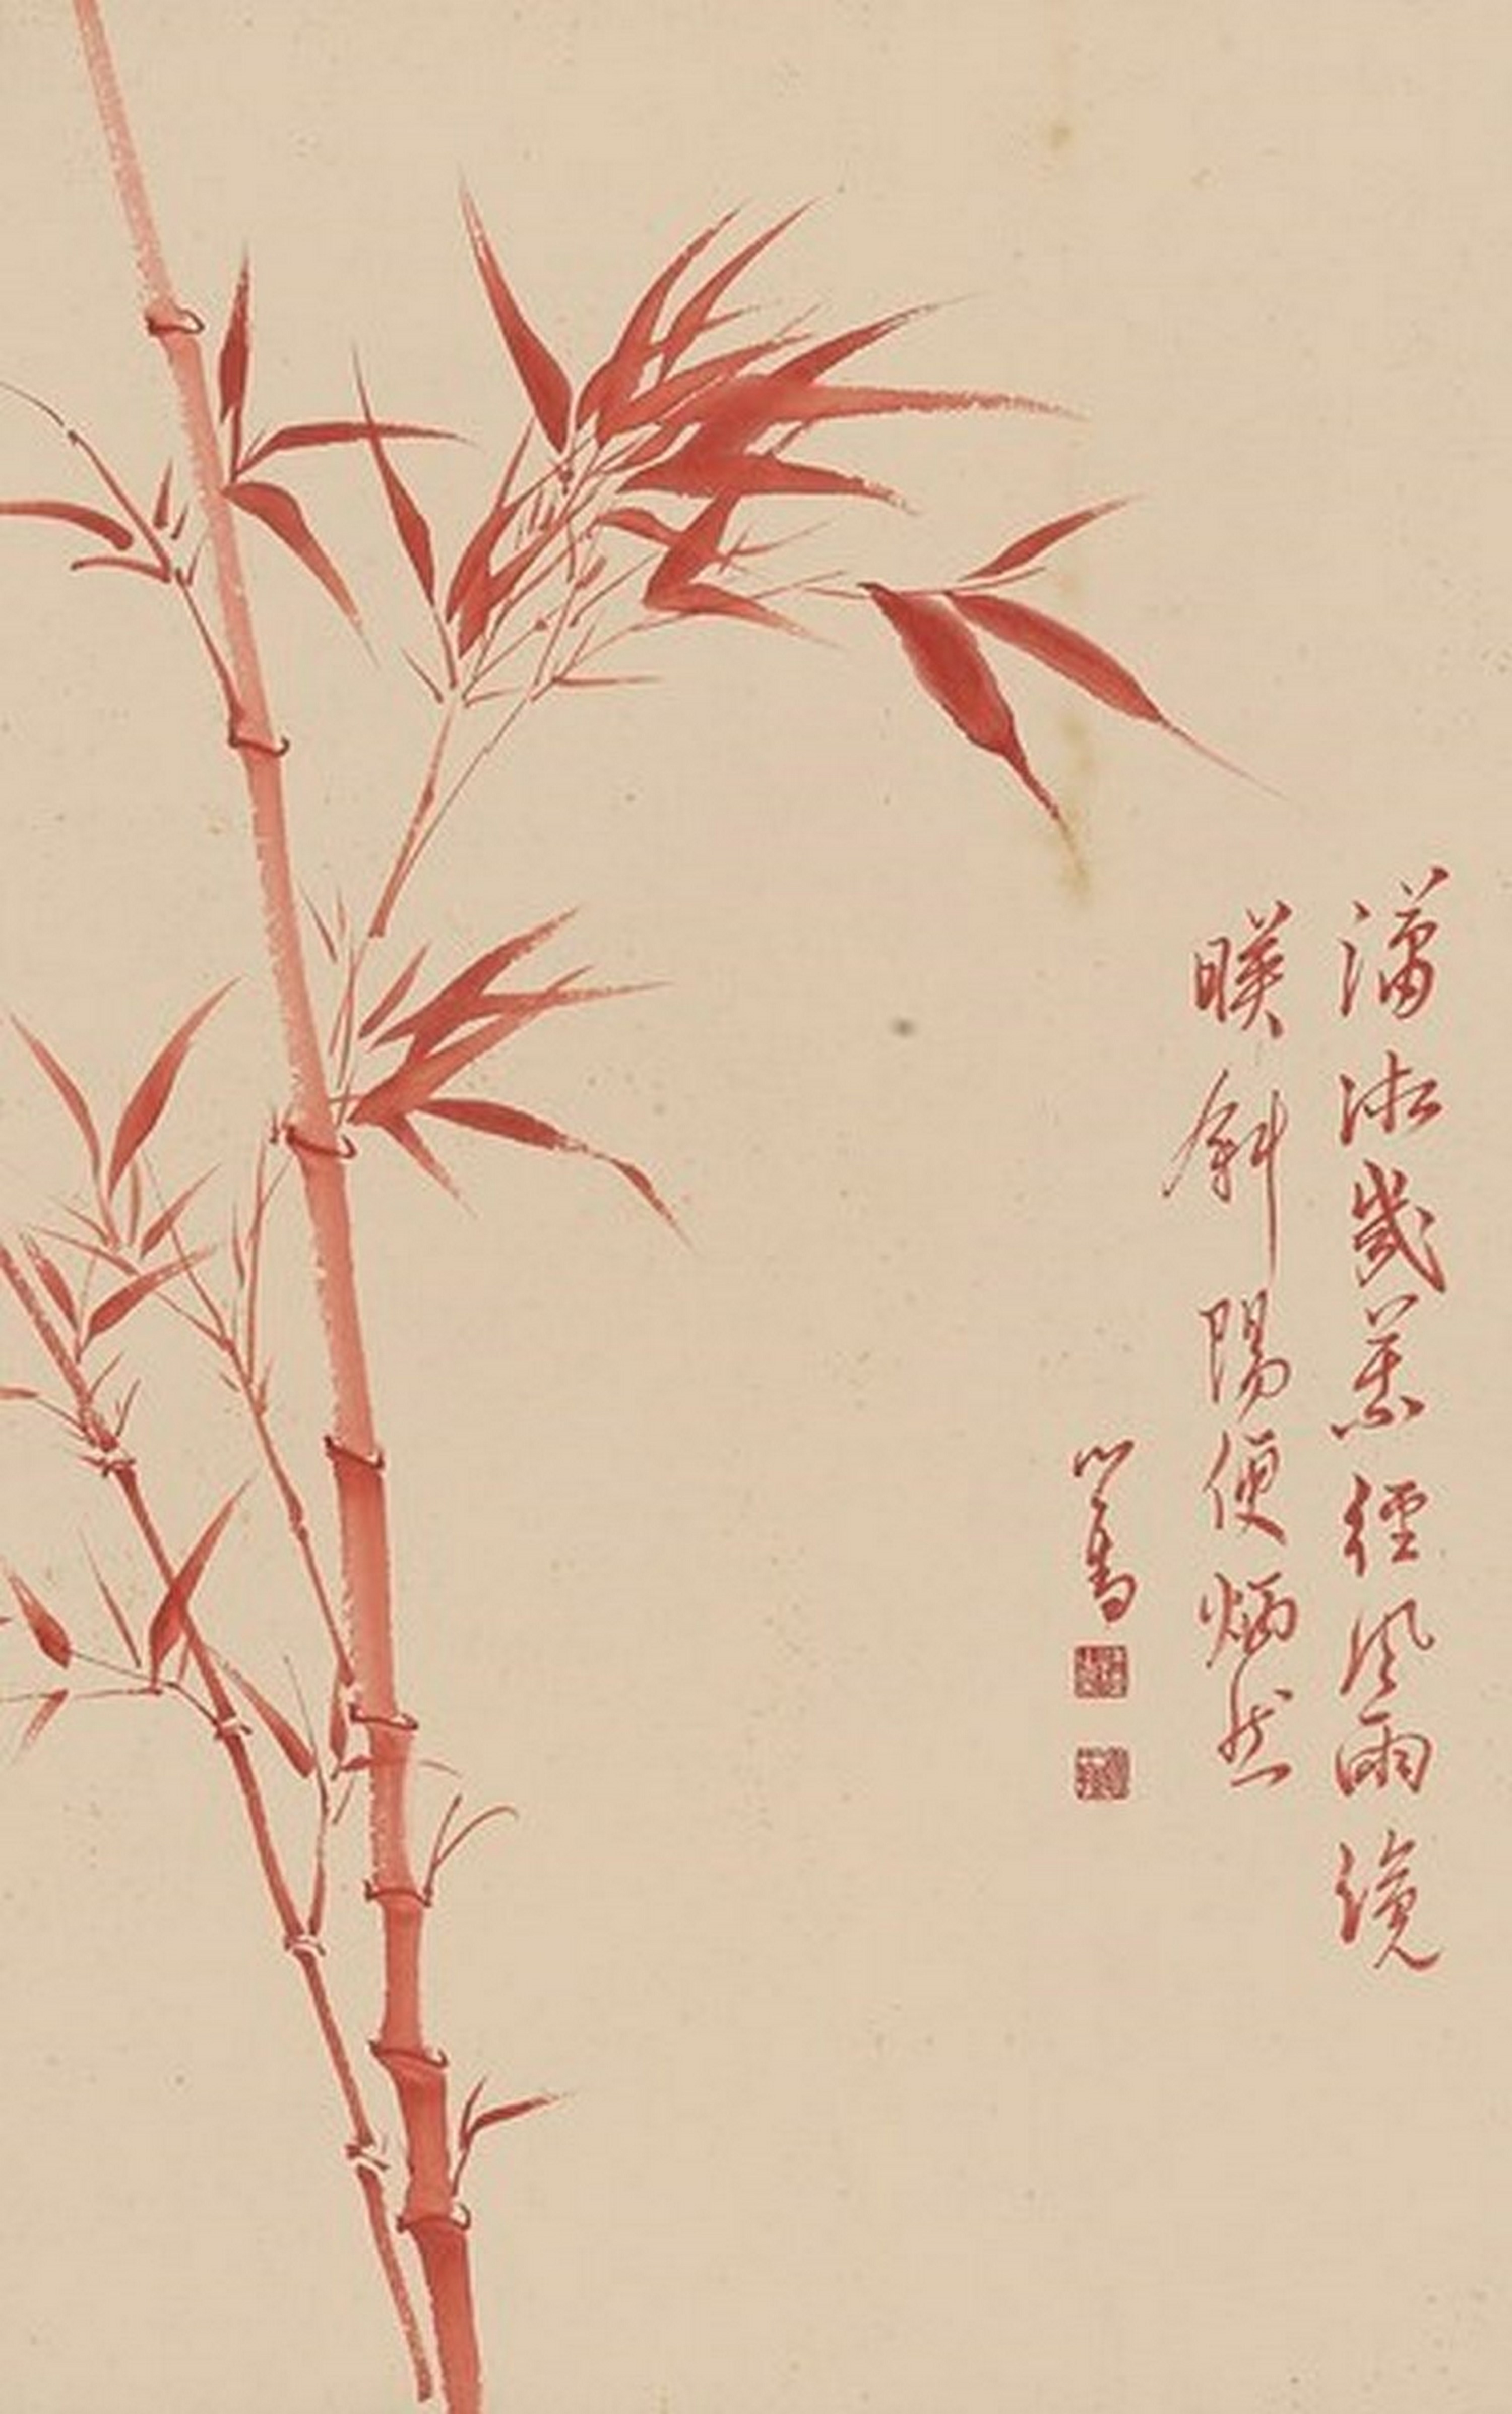 瀟湘幾葉經風雨纔
暎斜陽便炳然
心畬